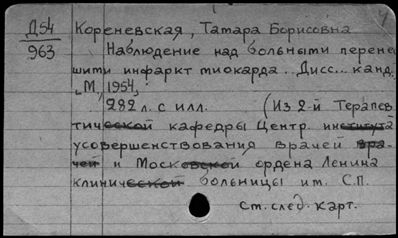 Д54
963
Кореневская, Тамара Борисовна
Наблюдение над больными перене-
шити инфаркт миокарда... Дисс... канд.
М., 1954,
282 л. с илл. (Из 2-й Терапев
тической кафедры Центр. института
усовершенствования врачей вра-
чей и Московской ордена Ленина
клинической больницы им. С.П.
См. след. карт.